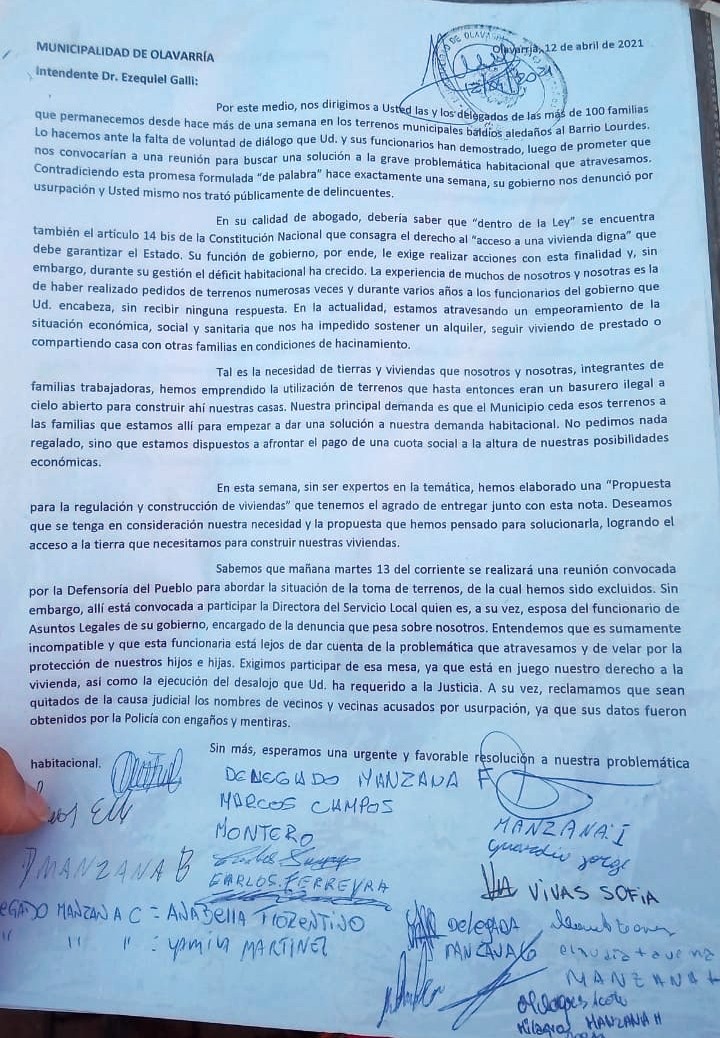 MUNICIPALIDAD DE OLAVARRÍA
Olavarría, 12 de abril de 2021
Intendente Dr. Ezequiel Galli:
Por este medio, nos dirigimos a Usted las y los delegados de las más de 100 familias
que permanecemos desde hace más de una semana en los terrenos municipales baldíos aledaños al Barrio Lourdes.
Lo hacemos ante la falta de voluntad de diálogo que Ud. y sus funcionarios han demostrado, luego de prometer que
nos convocarían a una reunión para buscar una solución a la grave problemática habitacional que atravesamos.
Contradiciendo esta promesa formulada "de palabra" hace exactamente una semana, su gobierno nos denunció por
usurpación y Usted mismo nos trató públicamente de delincuentes.
En su calidad de abogado, debería saber que "dentro de la Ley" se encuentra
también el artículo 14 bis de la Constitución Nacional que consagra el derecho al "acceso a una vivienda digna" que
debe garantizar el Estado. Su función de gobierno, por ende, le exige realizar acciones con esta finalidad y, sin
embargo, durante su gestión el déficit habitacional ha crecido. La experiencia de muchos de nosotros y nosotras es la
de haber realizado pedidos de terrenos numerosas veces y durante varios años a los funcionarios del gobierno que
Ud. encabeza, sin recibir ninguna respuesta. En la actualidad, estamos atravesando un empeoramiento de la
situación económica, social y sanitaria que nos ha impedido sostener un alquiler, seguir viviendo de prestado o
compartiendo casa con otras familias en condiciones de hacinamiento.
Tal es la necesidad de tierras y viviendas que nosotros y nosotras, integrantes de
familias trabajadoras, hemos emprendido la utilización de terrenos que hasta entonces eran un basurero ilegal a
cielo abierto para construir ahí nuestras casas. Nuestra principal demanda es que el Municipio ceda esos terrenos a
las familias que estamos allí para empezar a dar una solución a nuestra demanda habitacional. No pedimos nada
regalado, sino que estamos dispuestos a afrontar el pago de una cuota social a la altura de nuestras posibilidades
económicas.
En esta semana, sin ser expertos en la temática, hemos elaborado una "Propuesta
para la regulación y construcción de viviendas" que tenemos el agrado de entregar junto con esta nota. Deseamos
que se tenga en consideración nuestra necesidad y la propuesta que hemos pensado para solucionarla, logrando el
acceso a la tierra que necesitamos para construir nuestras viviendas.
Sabemos que mañana martes 13 del corriente se realizará una reunión convocada
por la Defensoría del Pueblo para abordar la situación de la toma de terrenos, de la cual hemos sido excluidos. Sin
embargo, allí está convocada a participar la Directora del Servicio Local quien es, a su vez, esposa del funcionario de
Asuntos Legales de su gobierno, encargado de la denuncia que pesa sobre nosotros. Entendemos que es sumamente
incompatible y que esta funcionaria está lejos de dar cuenta de la problemática que atravesamos y de velar por la
protección de nuestros hijos e hijas. Exigimos participar de esa mesa, ya que está en juego nuestro derecho a la
vivienda, así como la ejecución del desalojo que Ud. ha requerido a la Justicia. A su vez, reclamamos que sean
quitados de la causa judicial los nombres de vecinos y vecinas acusados por usurpación, ya que sus datos fueron
obtenidos por la Policía con engaños y mentiras.
Sin más, esperamos una urgente y favorable resolución a nuestra problemática
habitacional.
DELEGADO MANZANA F
MARCOS CAMPOS
MONTERO
MANZANA B
CARLOS FERREYRA
EGADO MANZANA C = ANABELLA FIOZENTINO
" " " : YAMILA MARTINEZ
MANZANA: I
jorge
VIVAS SOFIA
DELEGADA
MANZANA G
MANZANA
Milagros MANZANA H